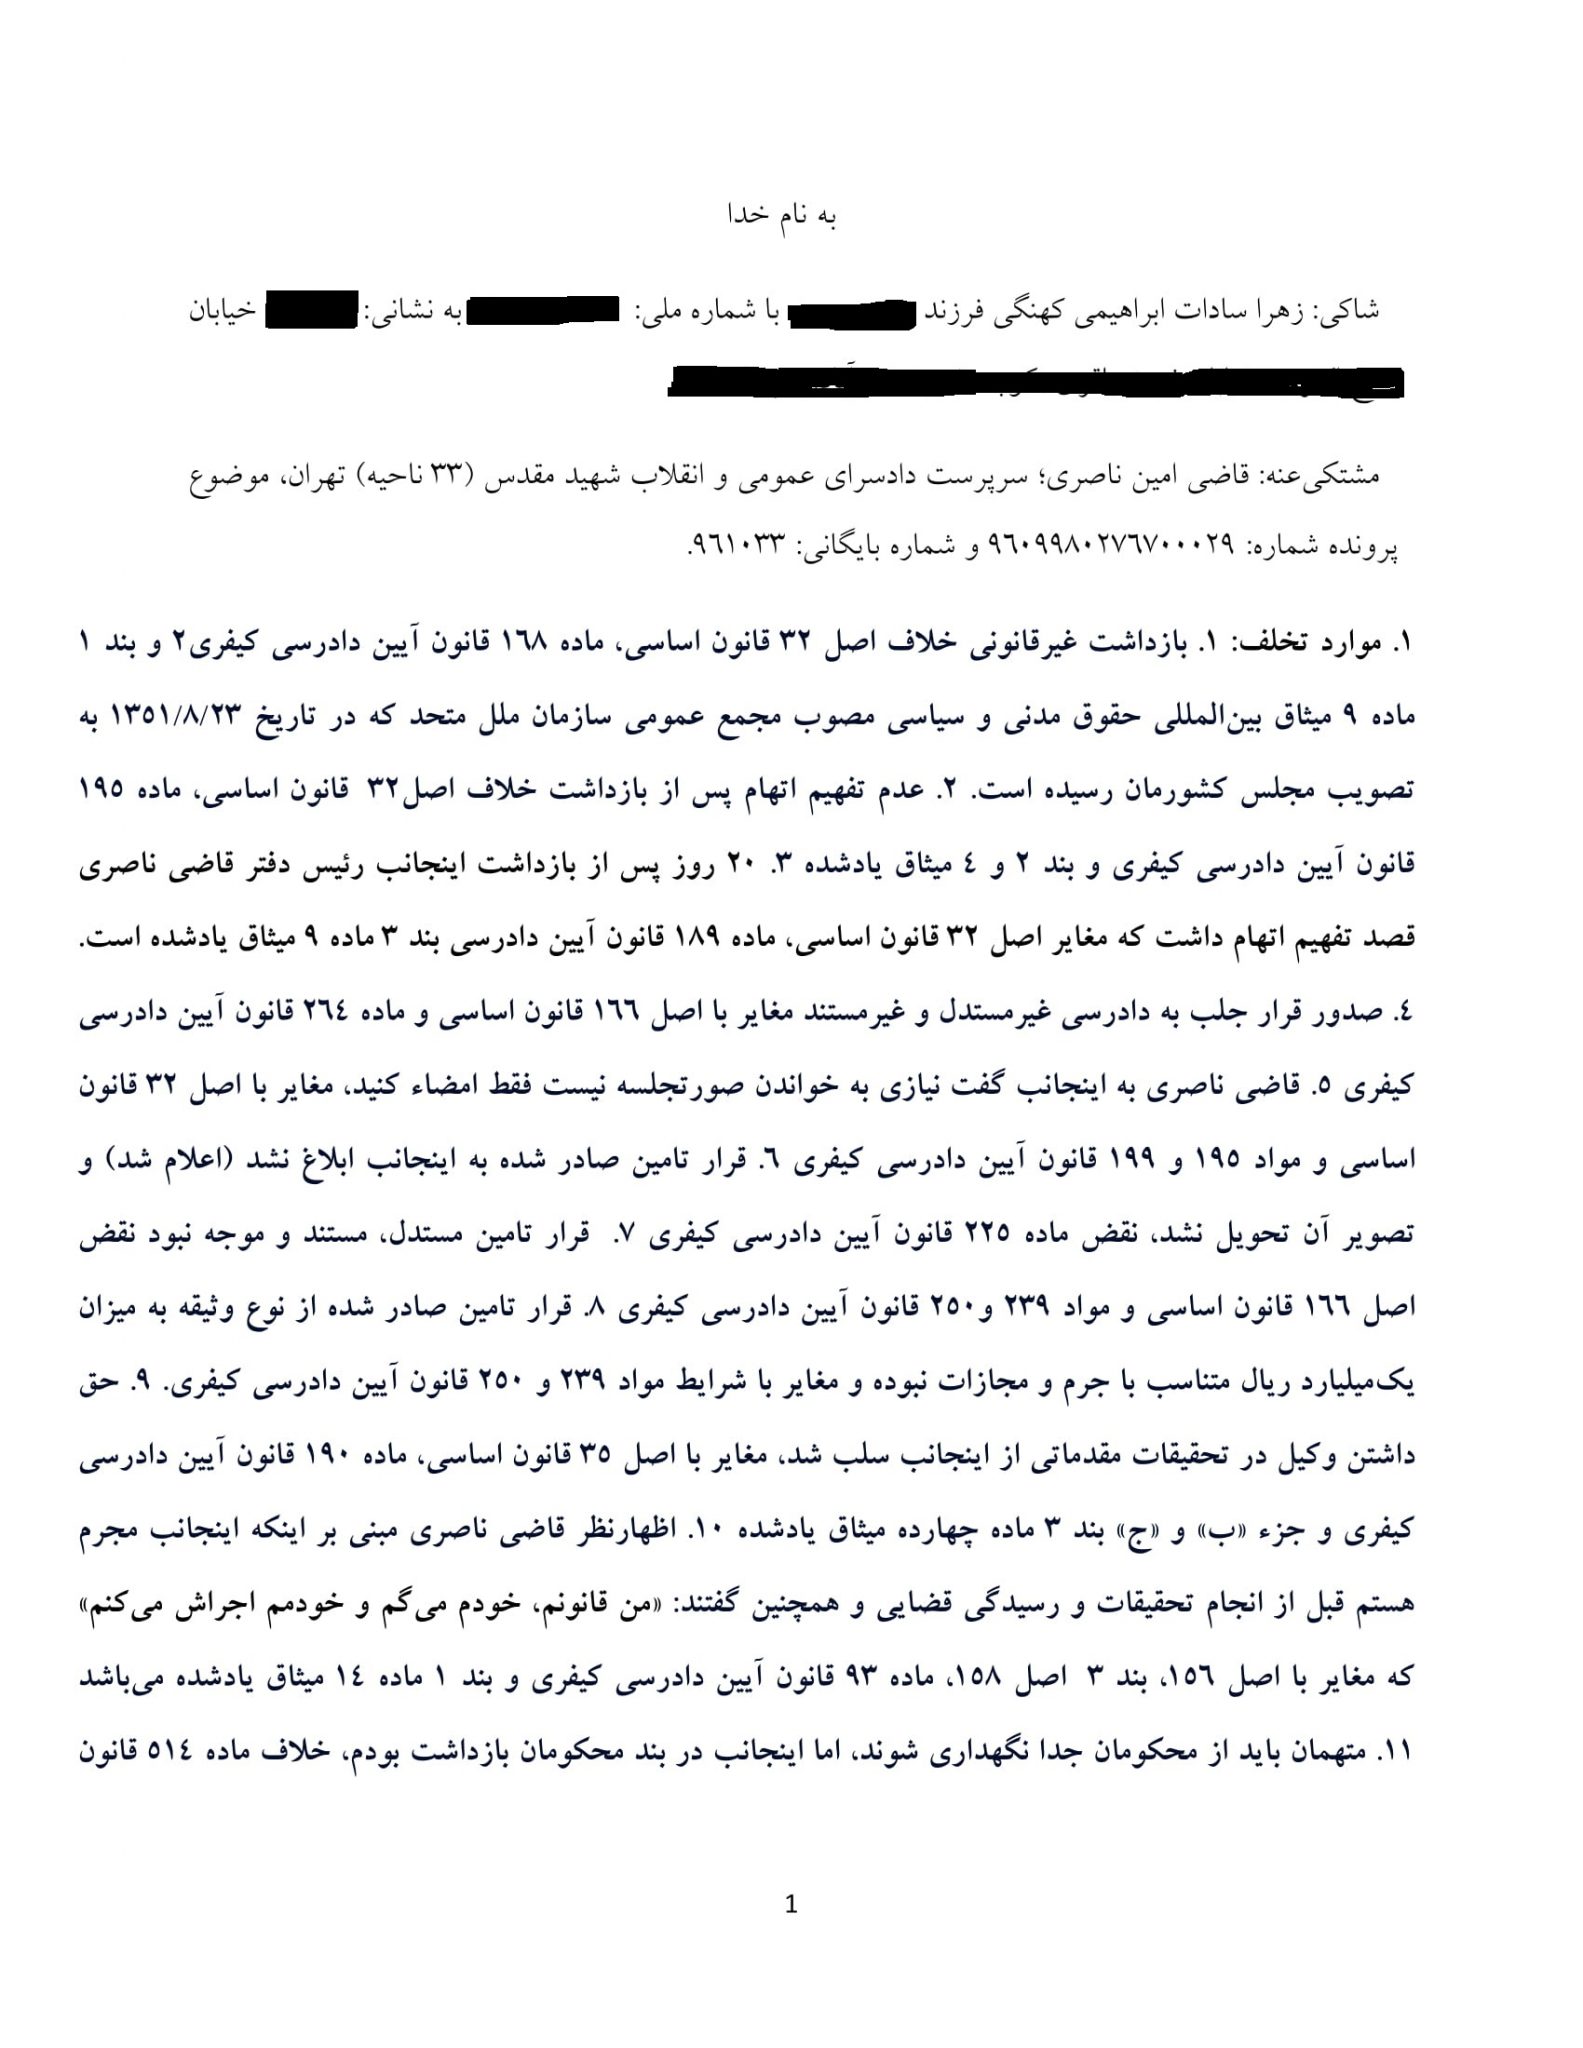 به نام خدا
شاکی: زهرا سادات ابراهیمی کهنگی فرزند با شماره ملی: به نشانی: خیابان
مشتکی‌عنه: قاضی امین ناصری؛ سرپرست دادسرای عمومی و انقلاب شهید مقدس (۳۳ ناحیه) تهران، موضوع
پرونده شماره: ۹۶۰۹۹۸۰۲۷۶۷۰۰۰۲۹ و شماره بایگانی: ۹۶۱۰۳۳.
۱. موارد تخلف: ۱. بازداشت غیرقانونی خلاف اصل ۳۲ قانون اساسی، ماده ۱۶۸ قانون آیین دادرسی کیفری۲ و بند ۱
ماده ۹ میثاق بین‌المللی حقوق مدنی و سیاسی مصوب مجمع عمومی سازمان ملل متحد که در تاریخ ۱۳۵۱/۸/۲۳ به
تصویب مجلس کشورمان رسیده است. ۲. عدم تفهیم اتهام پس از بازداشت خلاف اصل۳۲ قانون اساسی، ماده ۱۹۵
قانون آیین دادرسی کیفری و بند ۲ و ۴ میثاق یادشده ۳. ۲۰ روز پس از بازداشت اینجانب رئیس دفتر قاضی ناصری
قصد تفهیم اتهام داشت که مغایر اصل ۳۲ قانون اساسی، ماده ۱۸۹ قانون آیین دادرسی بند ۳ ماده ۹ میثاق یادشده است.
۴. صدور قرار جلب به دادرسی غیرمستدل و غیرمستند مغایر با اصل ۱۶۶ قانون اساسی و ماده ۲۶۴ قانون آیین دادرسی
کیفری ۵. قاضی ناصری به اینجانب گفت نیازی به خواندن صورتجلسه نیست فقط امضاء کنید، مغایر با اصل ۳۲ قانون
اساسی و مواد ۱۹۵ و ۱۹۹ قانون آیین دادرسی کیفری ۶. قرار تامین صادر شده به اینجانب ابلاغ نشد (اعلام شد) و
تصویر آن تحویل نشد، نقض ماده ۲۲۵ قانون آیین دادرسی کیفری ۷. قرار تامین مستدل، مستند و موجه نبود نقض
اصل ۱۶۶ قانون اساسی و مواد ۲۳۹ و۲۵۰ قانون آیین دادرسی کیفری ۸. قرار تامین صادر شده از نوع وثیقه به میزان
یک‌میلیارد ریال متناسب با جرم و مجازات نبوده و مغایر با شرایط مواد ۲۳۹ و ۲۵۰ قانون آیین دادرسی کیفری. ۹. حق
داشتن وکیل در تحقیقات مقدماتی از اینجانب سلب شد، مغایر با اصل ۳۵ قانون اساسی، ماده ۱۹۰ قانون آیین دادرسی
کیفری و جزء «ب» و «ج» بند ۳ ماده چهارده میثاق یادشده ۱۰. اظهارنظر قاضی ناصری مبنی بر اینکه اینجانب مجرم
هستم قبل از انجام تحقیقات و رسیدگی قضایی و همچنین گفتند: «من قانونم، خودم می‌گم و خودمم اجراش می‌کنم»
که مغایر با اصل ۱۵۶، بند ۳ اصل ۱۵۸، ماده ۹۳ قانون آیین دادرسی کیفری و بند ۱ ماده ۱۴ میثاق یادشده می‌باشد
۱۱. متهمان باید از محکومان جدا نگهداری شوند، اما اینجانب در بند محکومان بازداشت بودم، خلاف ماده ۵۱۴ قانون
1